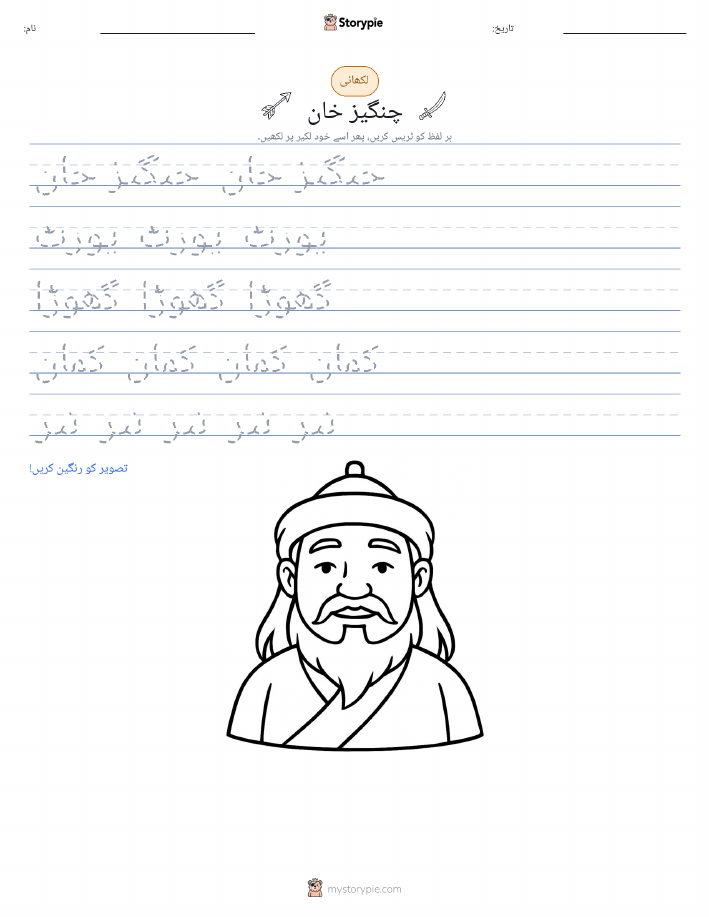 نام:
Storypie
تاریخ:
لکھائی
چنگیز خان
ہر لفظ کو ٹریس کریں، پھر اسے خود لکیر پر لکھیں۔
چنگیز خان چنگیز خان
یورٹ یورٹ یورٹ
گھوڑا گھوڑا گھوڑا
کمان کمان کمان کمان
تیر تیر تیر تیر تیر
تصویر کو رنگین کریں!
mystorypie.com